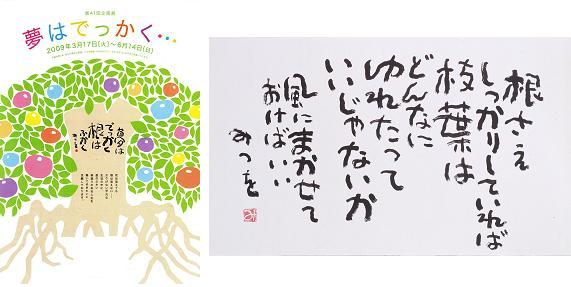 第41回企画展
夢はでっかく…
2009年3月17日(火)～6月14日(日)
夢は
でっかく
根は
ふかく
みつを
根さえ
しっかりしていれば
枝葉は
どんなに
ゆれたって
いいじゃないか
風にまかせて
おけばいい
みつを